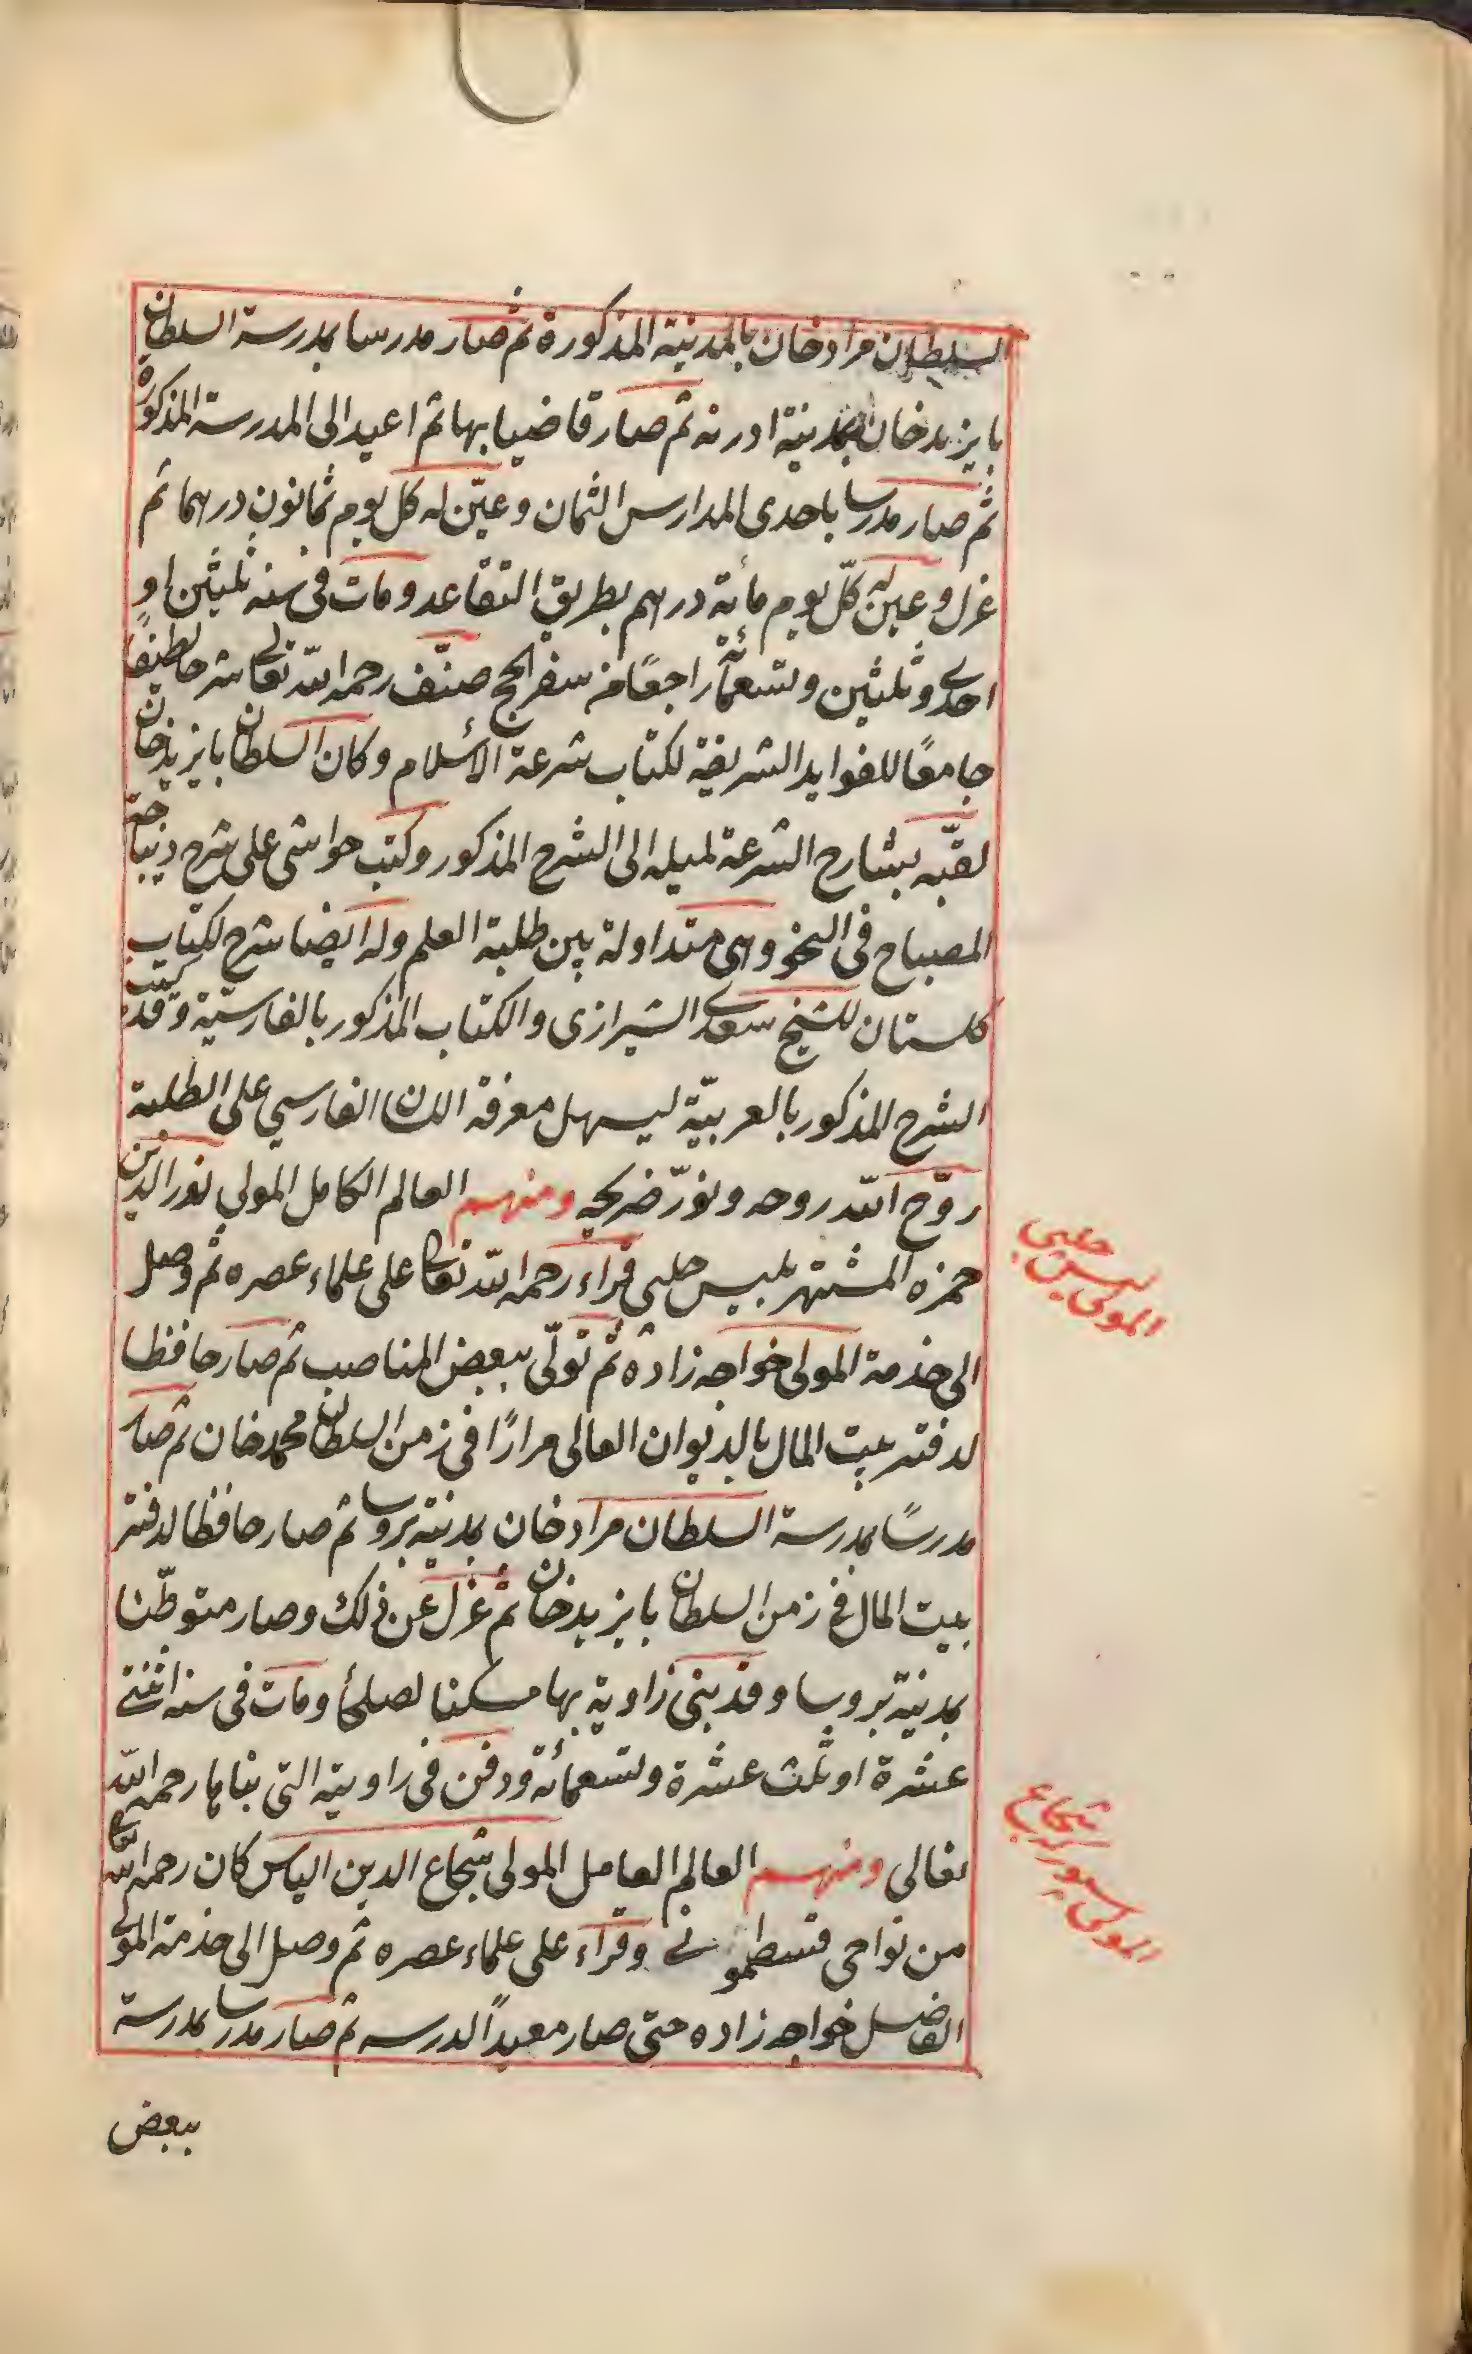 السلطان مراد خان بالمدينة المذكورة ثم صار مدرسا بمدرسة السلطان
بايزيد خان بمدينة ادرنه ثم صار قاضيا بها ثم اعيد الى المدرسة المذكورة
ثم صار مدرسا باحدى المدارس الثمان وعيّن له كل يوم ثمانون درهما ثم
عزل وعين له كلّ يوم مأئة درهم بطريق التقاعد ومات فى سنة ثلثين او
احدى وثلثين وتسعمأئة راجعًا من سفر الحج صنّف رحمه الله تعالى شرحا لطيفًا
جامعًا للفوايد الشريفة لكتاب شرعة الأسلام وكان السلطان بايزيد خان
لقبّه بشارح الشرعة لميله الى الشرح المذكور وكتب حواشى على شرح ديباجة
المصباح فى النحو وهى متداولة بين طلبة العلم وله ايضا شرح لكتاب
كلستان للشيخ سعدى الشيرازى والكتاب المذكور بالفارسيّة وقد كتب
الشرح المذكور بالعربيّة ليسهل معرفة اللسان الفارسي على الطلبة
روّح الله روحه ونوّر ضريحه ومنهم العالم الكامل المولى نور الدين
حمزه المشتهر بليس چلبى قراء رحمه الله تعالى على علماء عصره ثم وصل
الى خدمة المولى خواجه زاده ثم تولّى ببعض المناصب ثم صار حافظا
لدفتر بيت المال بالديوان العالى مرارًا فى زمن السلطان محمد خان ثم صار
مدرسًا بمدرسة السلطان مراد خان بمدينة بروسا ثم صار حافظا لدفتر
بيت المال فى زمن السلطان بايزيد خان ثم عزل عن ذلك وصار متوطّنا
بمدينة بروسا وقد بنى زاوية بها مسكنا لصلحأ ومات فى سنة اثنتى
عشرة او ثلث عشرة وتسعمائة ودفن فى زاويته التى بناها رحمه الله تعالى
تعالى ومنهم العالم العامل المولى شجاع الدين الياس كان رحمه الله
من نواحى قسطمونى وقراء على علماء عصره ثم وصل الى خدمة المولى
الفاضل خواجه زاده حتى صار معيدًا لدرسه ثم صار مدرسا بمدرسة
ببعض
المولى ليس چلبى
المولى شجاع